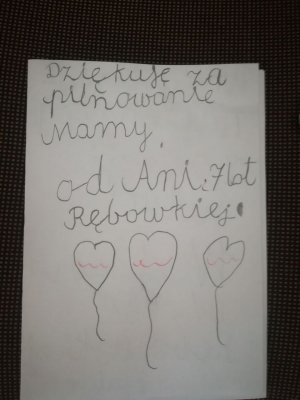 Dziękuję za
pilnowanie
Mamy.
od Ani 7 lat
Rębowkiej